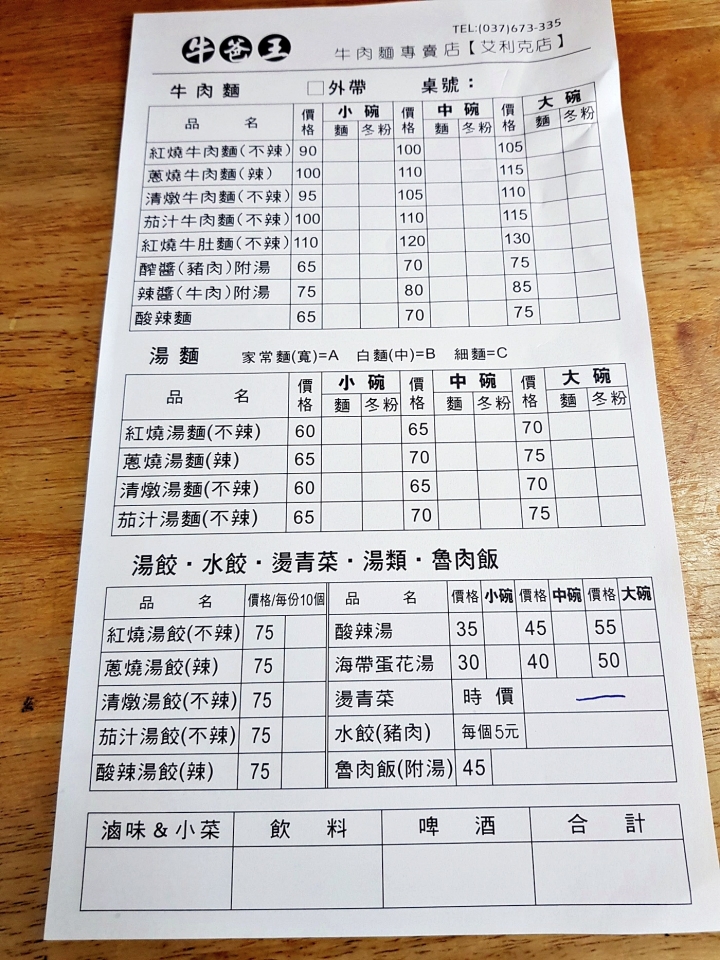 牛爸王
TEL:(037)673-335
牛肉麵專賣店【艾利克店】
牛肉麵 □外帶 桌號：
品名 價格 小碗 價格 中碗 價格 大碗
麵 冬粉 麵 冬粉 麵 冬粉
紅燒牛肉麵(不辣) 90 100 105
蔥燒牛肉麵(辣) 100 110 115
清燉牛肉麵(不辣) 95 105 110
茄汁牛肉麵(不辣) 100 110 115
紅燒牛肚麵(不辣) 110 120 130
醡醬(豬肉)附湯 65 70 75
辣醬(牛肉)附湯 75 80 85
酸辣麵 65 70 75
湯麵 家常麵(寬)=A 白麵(中)=B 細麵=C
品名 價格 小碗 價格 中碗 價格 大碗
麵 冬粉 麵 冬粉 麵 冬粉
紅燒湯麵(不辣) 60 65 70
蔥燒湯麵(辣) 65 70 75
清燉湯麵(不辣) 60 65 70
茄汁湯麵(不辣) 65 70 75
湯餃・水餃・燙青菜・湯類・魯肉飯
品名 價格/每份10個 品名 價格 小碗 價格 中碗 價格 大碗
紅燒湯餃(不辣) 75 酸辣湯 35 45 55
蔥燒湯餃(辣) 75 海帶蛋花湯 30 40 50
清燉湯餃(不辣) 75 燙青菜 時價
茄汁湯餃(不辣) 75 水餃(豬肉) 每個5元
酸辣湯餃(辣) 75 魯肉飯(附湯) 45
滷味&小菜 飲料 啤酒 合計